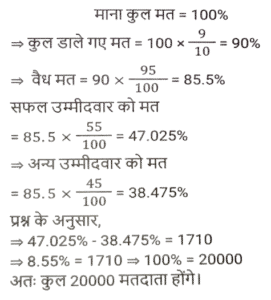 माना कुल मत = 100%
⇒ कुल डाले गए मत = 100 × 9/10 = 90%
⇒ वैध मत = 90 × 95/100 = 85.5%
सफल उम्मीदवार को मत
= 85.5 × 55/100 = 47.025%
⇒ अन्य उम्मीदवार को मत
= 85.5 × 45/100 = 38.475%
प्रश्न के अनुसार,
⇒ 47.025% - 38.475% = 1710
⇒ 8.55% = 1710 ⇒ 100% = 20000
अतः कुल 20000 मतदाता होंगे।